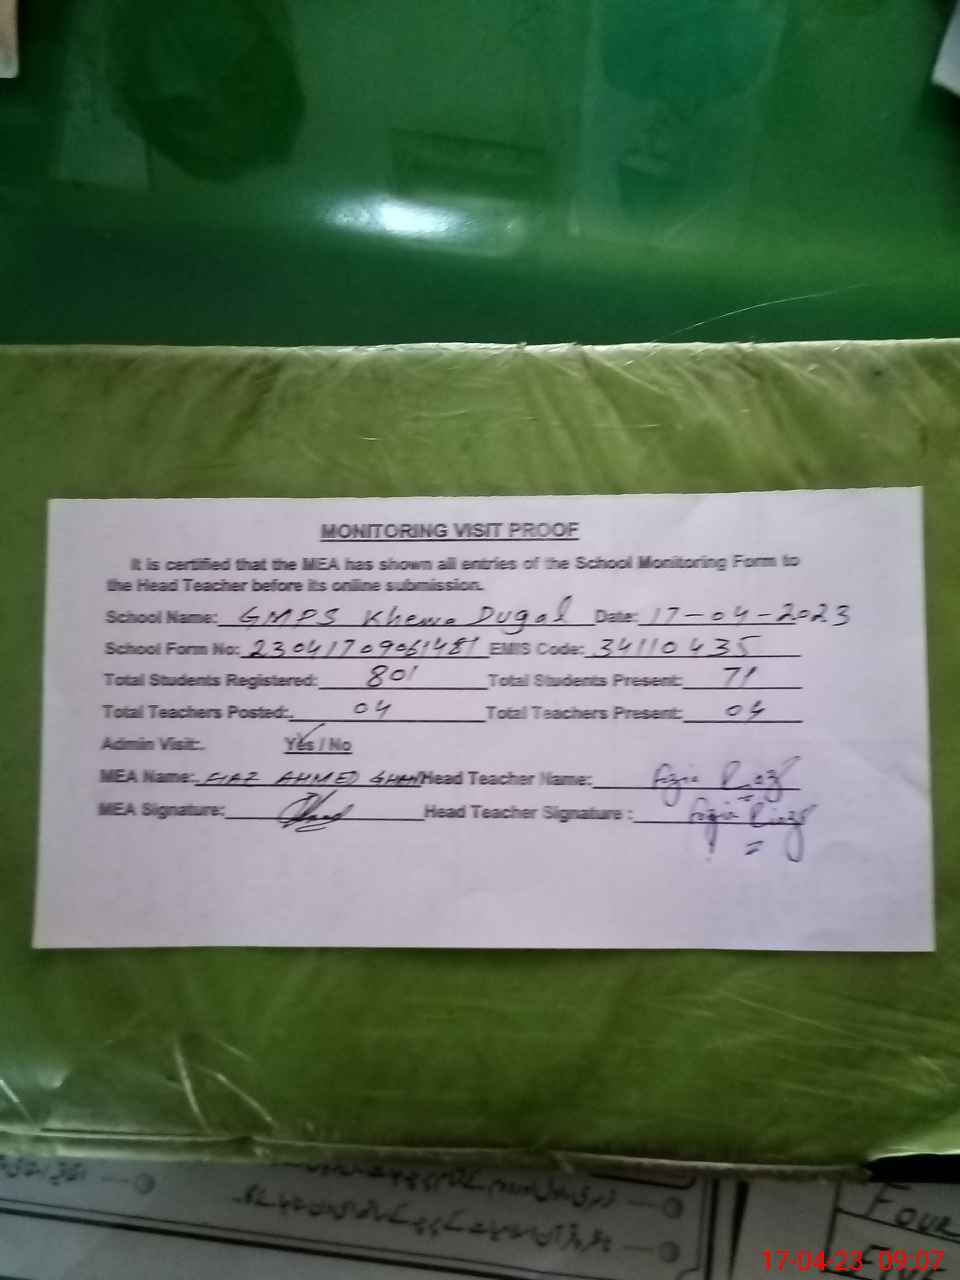 MONITORING VISIT PROOF
It is certified that the MEA has shown all entries of the School Monitoring Form to
the Head Teacher before its online submission.
School Name: GMPS Khewa Dugal Date: 17-04-2023
School Form No: 23041709061481 EMIS Code: 34110435
Total Students Registered: 801 Total Students Present: 71
Total Teachers Posted: 04 Total Teachers Present: 04
Admin Visit: Yes / No
MEA Name: AHMED Head Teacher Name:
MEA Signature: Head Teacher Signature :
FOUR
17-04-23 09:07